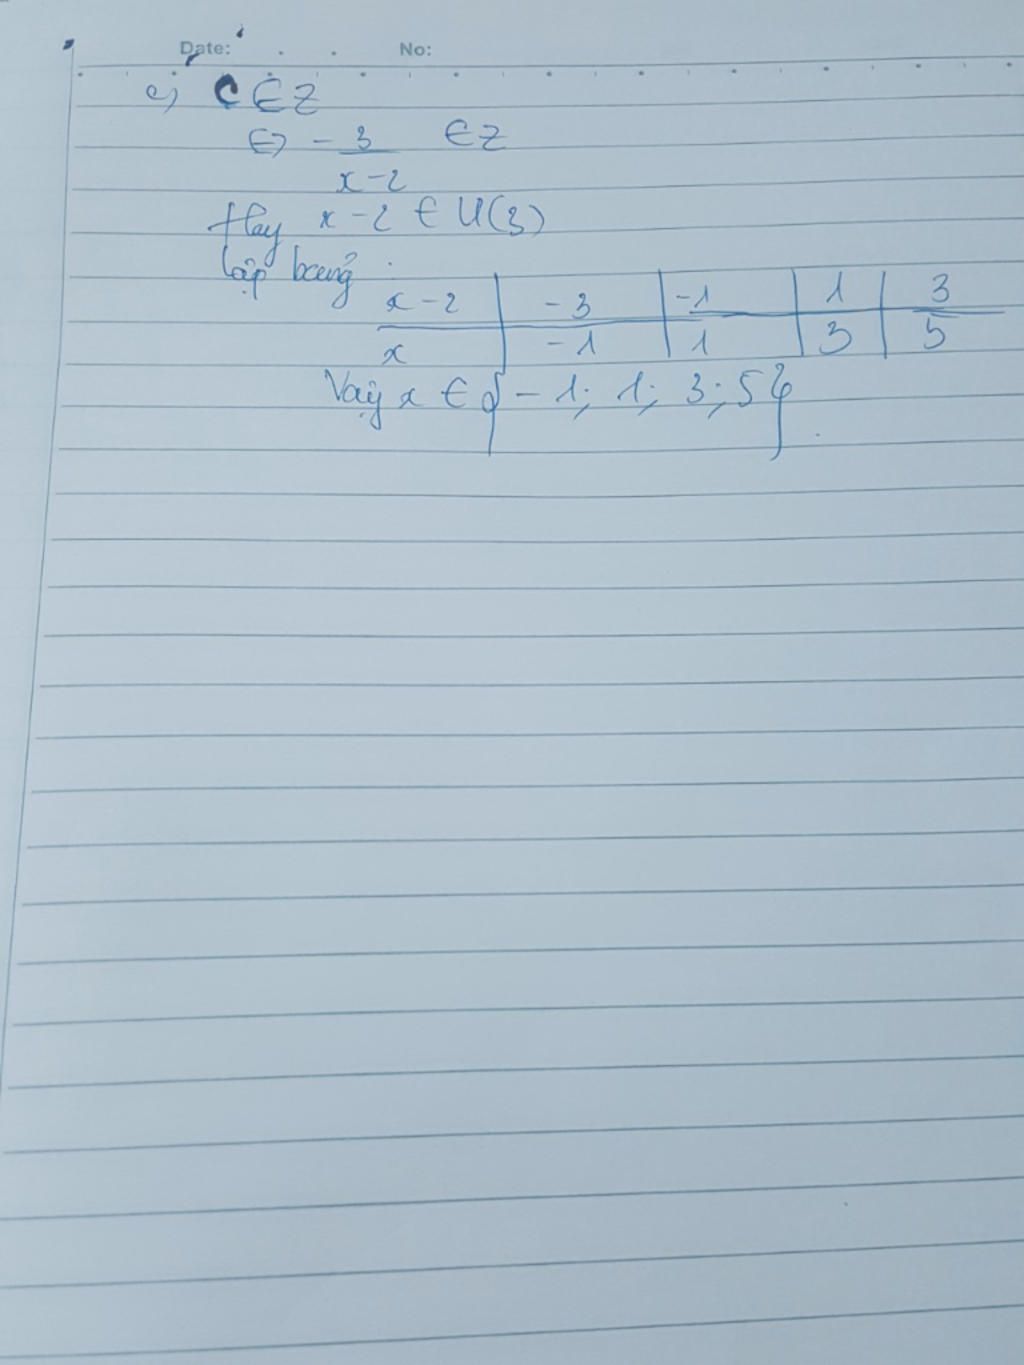 Date: No:
c) C ∈ Z
⇔ - 3/(x-2) ∈ Z
Hay x - 2 ∈ Ư(3)
Lập bảng:
x-2 | -3 | -1 | 1 | 3
x | -1 | 1 | 3 | 5
Vậy x ∈ { -1; 1; 3; 5 }